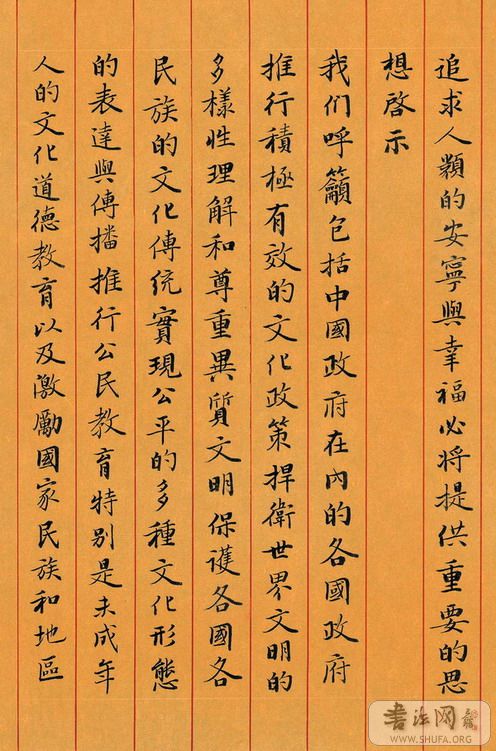 追求人類的安寧與幸福必将提供重要的思
想啓示
我们呼籲包括中國政府在內的各國政府
推行積極有效的文化政策捍衛世界文明的
多樣性理解和尊重異質文明保護各國各
民族的文化傳統實現公平的多種文化形態
的表達與傳播推行公民教育特别是未成年
人的文化道德教育以及激勵國家民族和地區
书法网
WWW.SHUFA.ORG